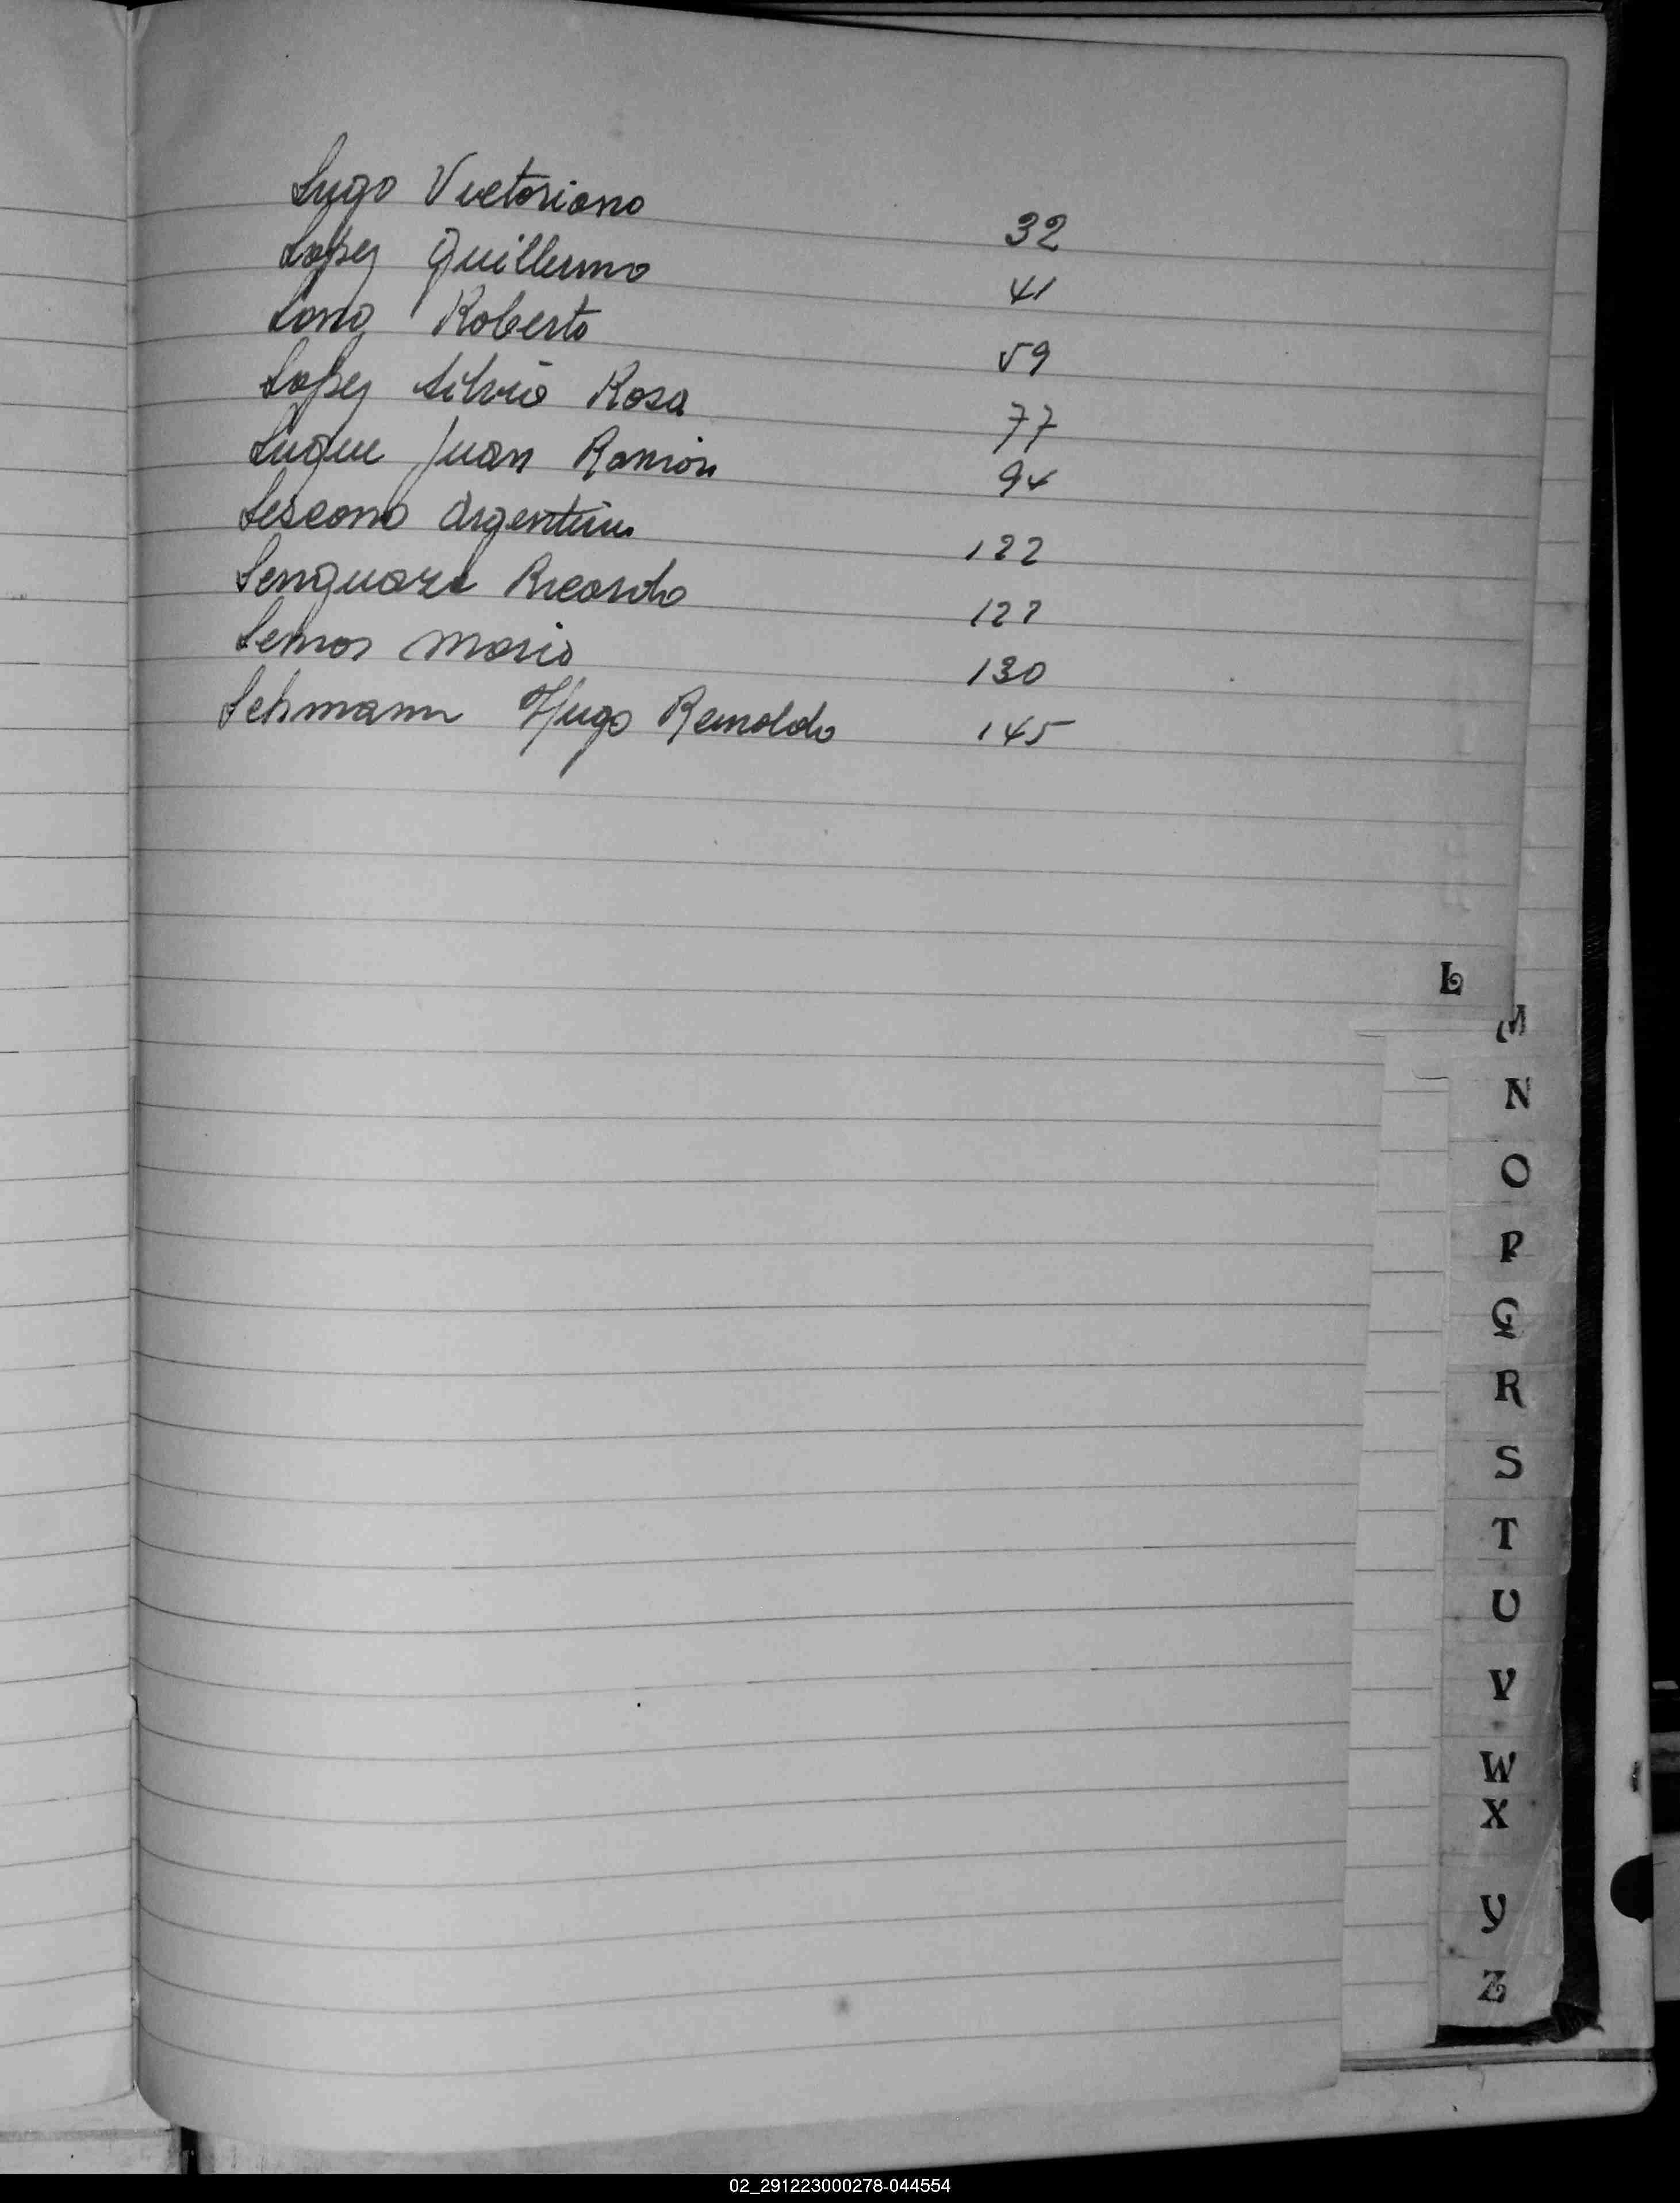 Lugo Victoriano 32
Lopez Guillermo 41
Lona Roberto 59
Lopez Silvio Rosa 77
Luque Juan Ramon 94
Lescano Argentino 122
Lenguaza Ricardo 127
Lemos Mario 130
Lehmann Hugo Reinoldo 145
L
M
N
O
P
Q
R
S
T
U
V
W
X
Y
Z
02_291223000278-044554